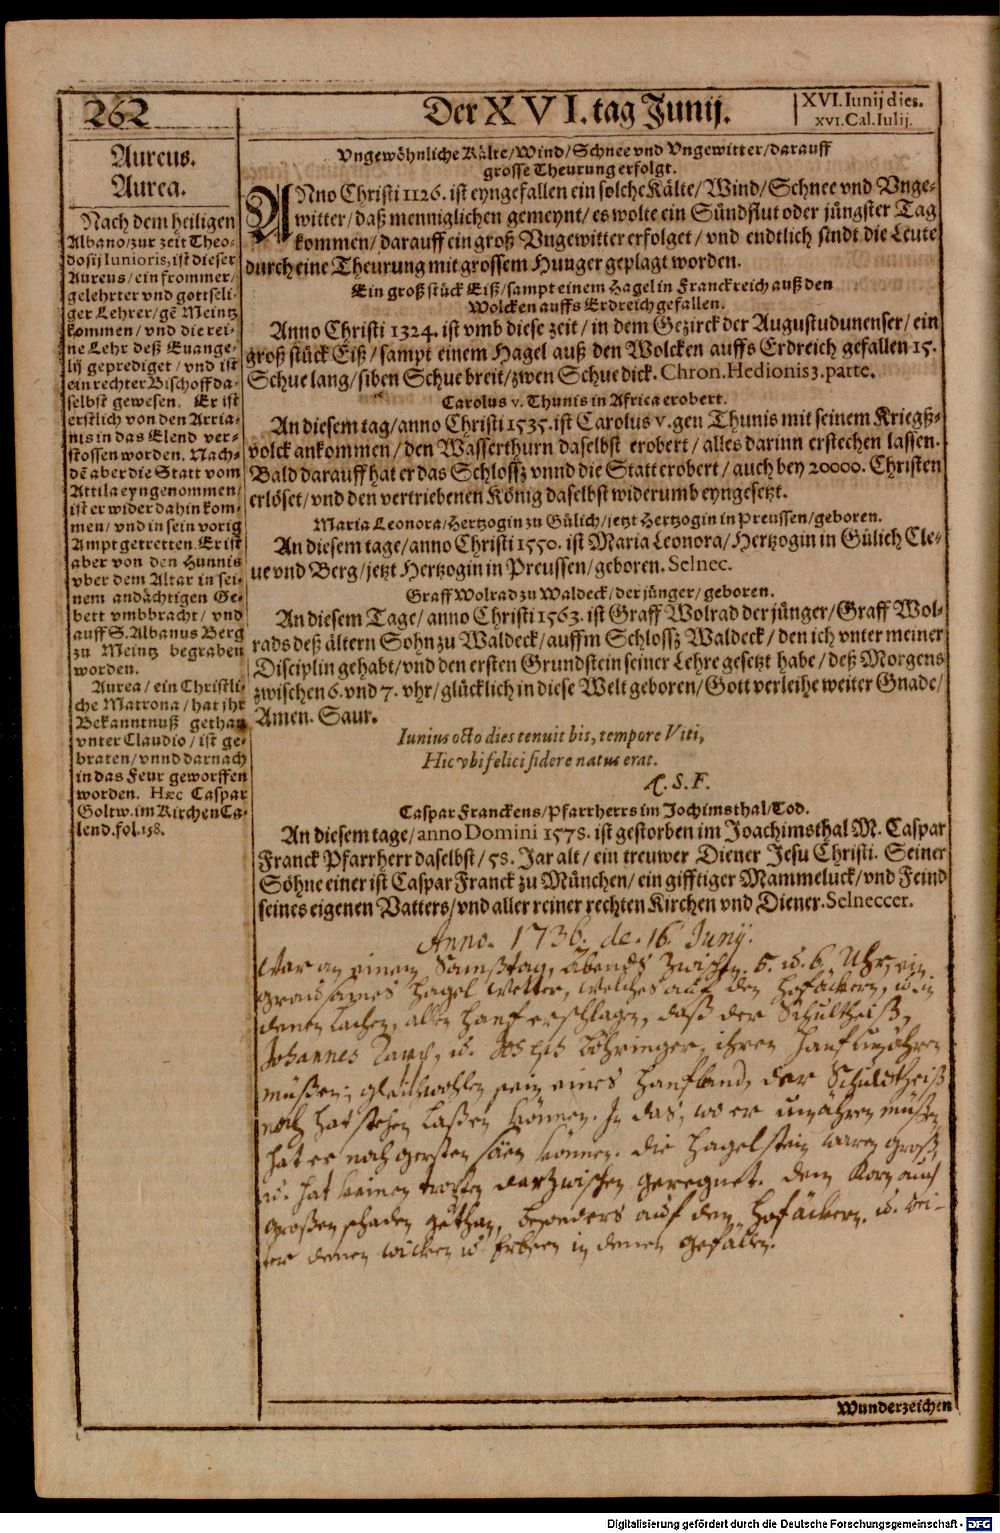 262
Der XVI. tag Junij.
XVI. Iunij dies.
XVI. Cal. Iulij.
Aureus.
Aurea.
Nach dem heiligen
Albano/zur zeit Theo-
dosij Iunioris, ist dieser
Aureus/ein frommer/
gelehrter vnd gottseli-
ger Lehrer/gē Meintz
kommen/vnd die rei-
ne Lehr deß Euange-
lij geprediget/vnd ist
ein rechter Bischoff da-
selbst gewesen. Er ist
erstlich von den Arria-
nis in das Elend ver-
stossen worden. Nach-
dē aber die Statt vom
Attila eyngenommen/
ist er wider dahin kom-
men/vnd in sein vorig
Ampt getretten. Er ist
aber von den Hunnis
vber dem Altar in sei-
nem andächtigen Ge-
bett vmbbracht/vnd
auff S. Albanus Berg
zu Meintz begraben
worden.
Aurea/ein Christli-
che Matrona/hat jhr
Bekanntnuß gethan
vnter Claudio/ist ge-
braten/vnnd darnach
in das Feur geworffen
worden. Hæc Caspar
Goltw. im Kirchen Ca-
lend. fol. 158.
Vngewöhnliche Kälte/Wind/Schnee vnd Vngewitter/darauff
grosse Theurung erfolgt.
ANno Christi 1126. ist eyngefallen ein solche Kälte/Wind/Schnee vnd Vnge-
witter/daß menniglichen gemeynt/es wolte ein Sündflut oder jüngster Tag
kommen/darauff ein groß Vngewitter erfolget/vnd endtlich sindt die Leute
durch eine Theurung mit grossem Hunger geplagt worden.
Ein groß stück Eiß/sampt einem Hagel in Franckreich auß den
Wolcken auffs Erdreich gefallen.
Anno Christi 1324. ist vmb diese zeit/in dem Gezirck der Augustudunenser/ein
groß stück Eiß/sampt einem Hagel auß den Wolcken auffs Erdreich gefallen 15.
Schue lang/siben Schue breit/zwen Schue dick. Chron. Hedionis 3. parte.
Carolus v. Thunis in Africa erobert.
An diesem tag/anno Christi 1535. ist Carolus v. gen Thunis mit seinem Kriegß-
volck ankommen/den Wasserthurn daselbst erobert/alles darinn erstechen lassen.
Bald darauff hat er das Schlossz vnnd die Statt erobert/auch bey 20000. Christen
erlöset/vnd den vertriebenen König daselbst widerumb eyngesetzt.
Maria Leonora/Hertzogin zu Gülich/jetzt Hertzogin in Preussen/geboren.
An diesem tage/anno Christi 1550. ist Maria Leonora/Hertzogin in Gülich Cle-
ue vnd Berg/jetzt Hertzogin in Preussen/geboren. Selnec.
Graff Wolrad zu Waldeck/der jünger/geboren.
An diesem Tage/anno Christi 1563. ist Graff Wolrad der jünger/Graff Wol-
rads deß ältern Sohn zu Waldeck/auffm Schlossz Waldeck/den ich vnter meiner
Disciplin gehabt/vnd den ersten Grundstein seiner Lehre gesetzt habe/deß Morgens
zwischen 6. vnd 7. vhr/glücklich in diese Welt geboren/Gott verleihe weiter Gnade/
Amen. Saur.
Iunius octo dies tenuit bis, tempore Viti,
Hic vbi felici sidere natus erat.
A. S. F.
Caspar Franckens/Pfarrherrs im Jochimsthal/Tod.
An diesem tage/anno Domini 1578. ist gestorben im Joachimsthal M. Caspar
Franck Pfarrherr daselbst/58. Jar alt/ein treuwer Diener Jesu Christi. Seiner
Söhne einer ist Caspar Franck zu München/ein gifftiger Mammeluck/vnd Feind
seines eigenen Vatters/vnd aller reiner rechten Kirchen vnd Diener. Selneccer.
Anno. 1736. de. 16. Junÿ.
War an einem Samßtag, Abends Zwischen. 5. u. 6. Uhr, ein
grausames Hagel Wetter, welches auf den Hofäckern, u. in
denen Lachen, allen Hanf erschlagen, daß der Schultheiß,
Johannes u. Joseph Böhringer, ihren Hanf umähren
müßen; gleichwohlen sein eines Hanfland, der Schuldtheiß
noch hat stehen laßen können. In das, wo er umähren müßen,
hat er noch gersten säen können. die Hagelstein waren groß,
u. hat keinen tropfen darzwischen geregnet. dem Korn auch
großen schaden gethan, besonders auf den Hofäckern. u. wei-
ter denen wicken u. Erbsen in denen gefallen.
Wunderzeichen
Digitalisierung gefördert durch die Deutsche Forschungsgemeinschaft - DFG